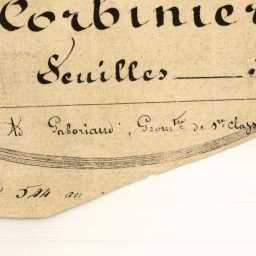 Corbinier
Feuilles
Gaboriaud, Géomtre de 1re class
544 au